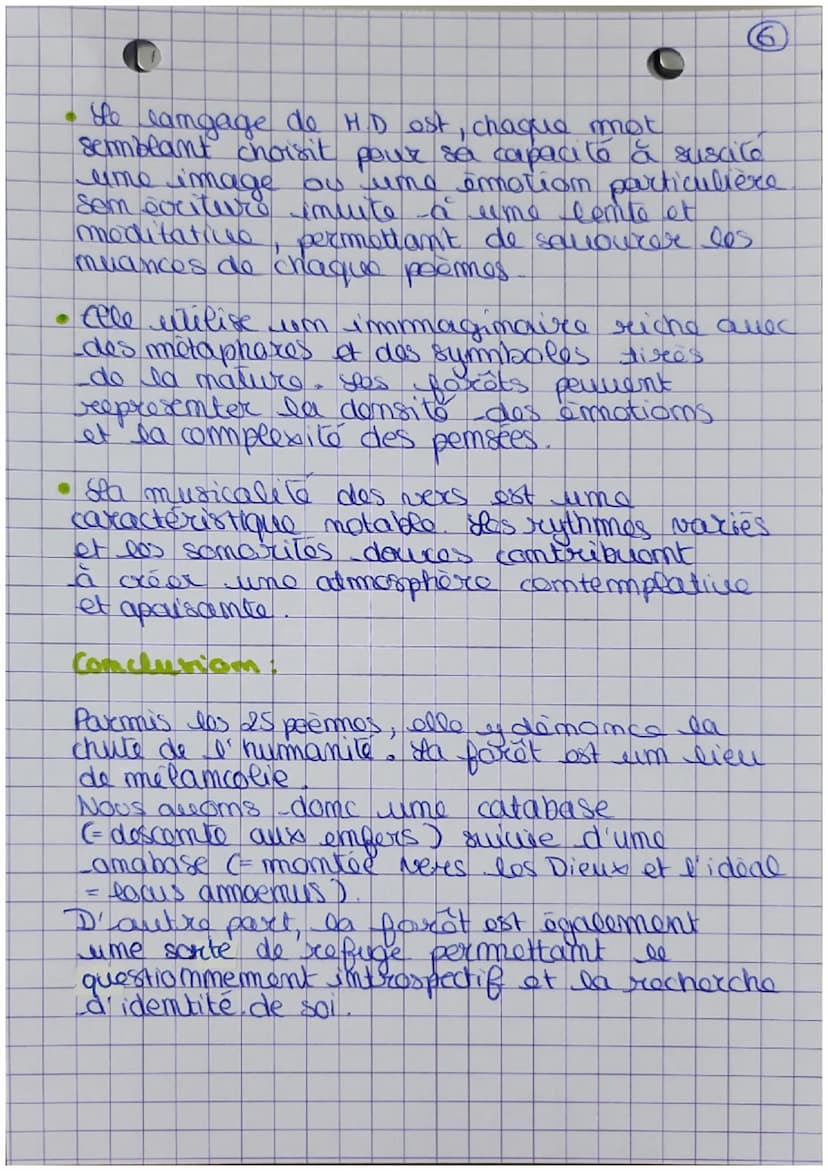 6
• Le langage de H.D est, chaque mot
semblant choisit pour sa capacité à suscité
une immage ou une émmotion particulière
son écriture invite à une lente et
méditative, permettant de savourer les
nuances de chaque poèmes.
• Elle utilise un immaginaire riche avec
des métaphores et des symmboles tirés
de la nature. Les forêts peuvent
représenter la densité des émmotions
et la commplexité des pensées.
• La musicalité des vers est une
caractéristique notable. Les rythmes variés
et les sonorités douces contribuent
à créer une atmosphère contemplative
et apaisante.
Conclusion :
Parmis les 25 poèmmes, elle y dénonce la
chute de l'hummanité. La forêt est un lieu
de mélancolie.
Nous avons donc une catabase
(= descente aux enfers) suivie d'une
anabase (= montée vers les Dieux et l'idéal
= locus ammoenus).
D'autre part, la forêt est également
une sorte de refuge permettant le
questionnement introspectif et la recherche
d'identité, de soi.